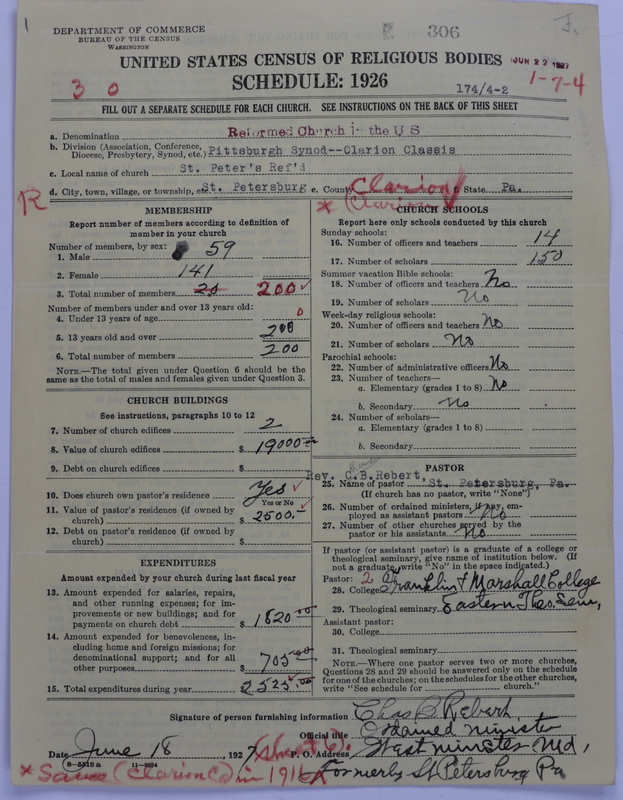 DEPARTMENT OF COMMERCE
BUREAU OF THE CENSUS
WASHINGTON
306
F.
UNITED STATES CENSUS OF RELIGIOUS BODIES
JUN 22 1927
SCHEDULE: 1926
3 0
174/4-2
1-7-4
FILL OUT A SEPARATE SCHEDULE FOR EACH CHURCH. SEE INSTRUCTIONS ON THE BACK OF THIS SHEET
a. Denomination Reformed Church in the U S
b. Division (Association, Conference, Diocese, Presbytery, Synod, etc.) Pittsburgh Synod--Clarion Classis
c. Local name of church St. Peter's Ref'd
d. City, town, village, or township, etc. St. Petersburg e. County Clarion f. State Pa.
R
* (Clarion)
MEMBERSHIP
Report number of members according to definition of
member in your church
Number of members, by sex:
1. Male 59
2. Female 141
3. Total number of members 20 200
Number of members under and over 13 years old:
4. Under 13 years of age 0
5. 13 years old and over 200
6. Total number of members 200
NOTE.—The total given under Question 6 should be
same as the total of males and females given under Question 3.
CHURCH BUILDINGS
See instructions, paragraphs 10 to 12
7. Number of church edifices 2
8. Value of church edifices $ 19000
9. Debt on church edifices $
10. Does church own pastor's residence Yes
Yes or No
11. Value of pastor's residence (if owned by
church) $ 2500.-
12. Debt on pastor's residence (if owned by
church) $
EXPENDITURES
Amount expended by your church during last fiscal year
13. Amount expended for salaries, repairs,
and other running expenses; for im-
provements or new buildings; and for
payments on church debt $ 1820.00
14. Amount expended for benevolences, in-
cluding home and foreign missions; for
denominational support; and for all
other purposes $ 705.00
15. Total expenditures during year $ 2525.00
CHURCH SCHOOLS
Report here only schools conducted by this church
Sunday schools:
16. Number of officers and teachers 14
17. Number of scholars 150
Summer vacation Bible schools:
18. Number of officers and teachers No
19. Number of scholars No
Week-day religious schools:
20. Number of officers and teachers No
21. Number of scholars No
Parochial schools:
22. Number of administrative officers No
23. Number of teachers—
a. Elementary (grades 1 to 8) No
b. Secondary No
24. Number of scholars—
a. Elementary (grades 1 to 8)
b. Secondary
PASTOR
Rev. C.B.Rebert,
25. Name of pastor St. Petersburg, Pa.
(If church has no pastor, write "None")
26. Number of ordained ministers, if any, em-
ployed as assistant pastors No
27. Number of other churches served by the
pastor or his assistants No
If pastor (or assistant pastor) is a graduate of a college or
theological seminary, give name of institution below. (If
not a graduate, write "No" in the space indicated.)
Pastor: 2
28. College Franklin & Marshall College
29. Theological seminary Eastern Theo. Sem,
Assistant pastor:
30. College
31. Theological seminary
NOTE.—Where one pastor serves two or more churches,
Questions 28 and 29 should be answered only on the schedule
for one of the churches; on the schedules for the other churches,
write "See schedule for church."
Signature of person furnishing information Chas B Rebert
Official title Ordained minister
Date June 18, 1927 (sheet 6) P. O. Address Westminster Md,
8-5018a 11-9094
Formerly St Petersburg Pa
* Same (Clarion C) in 1916